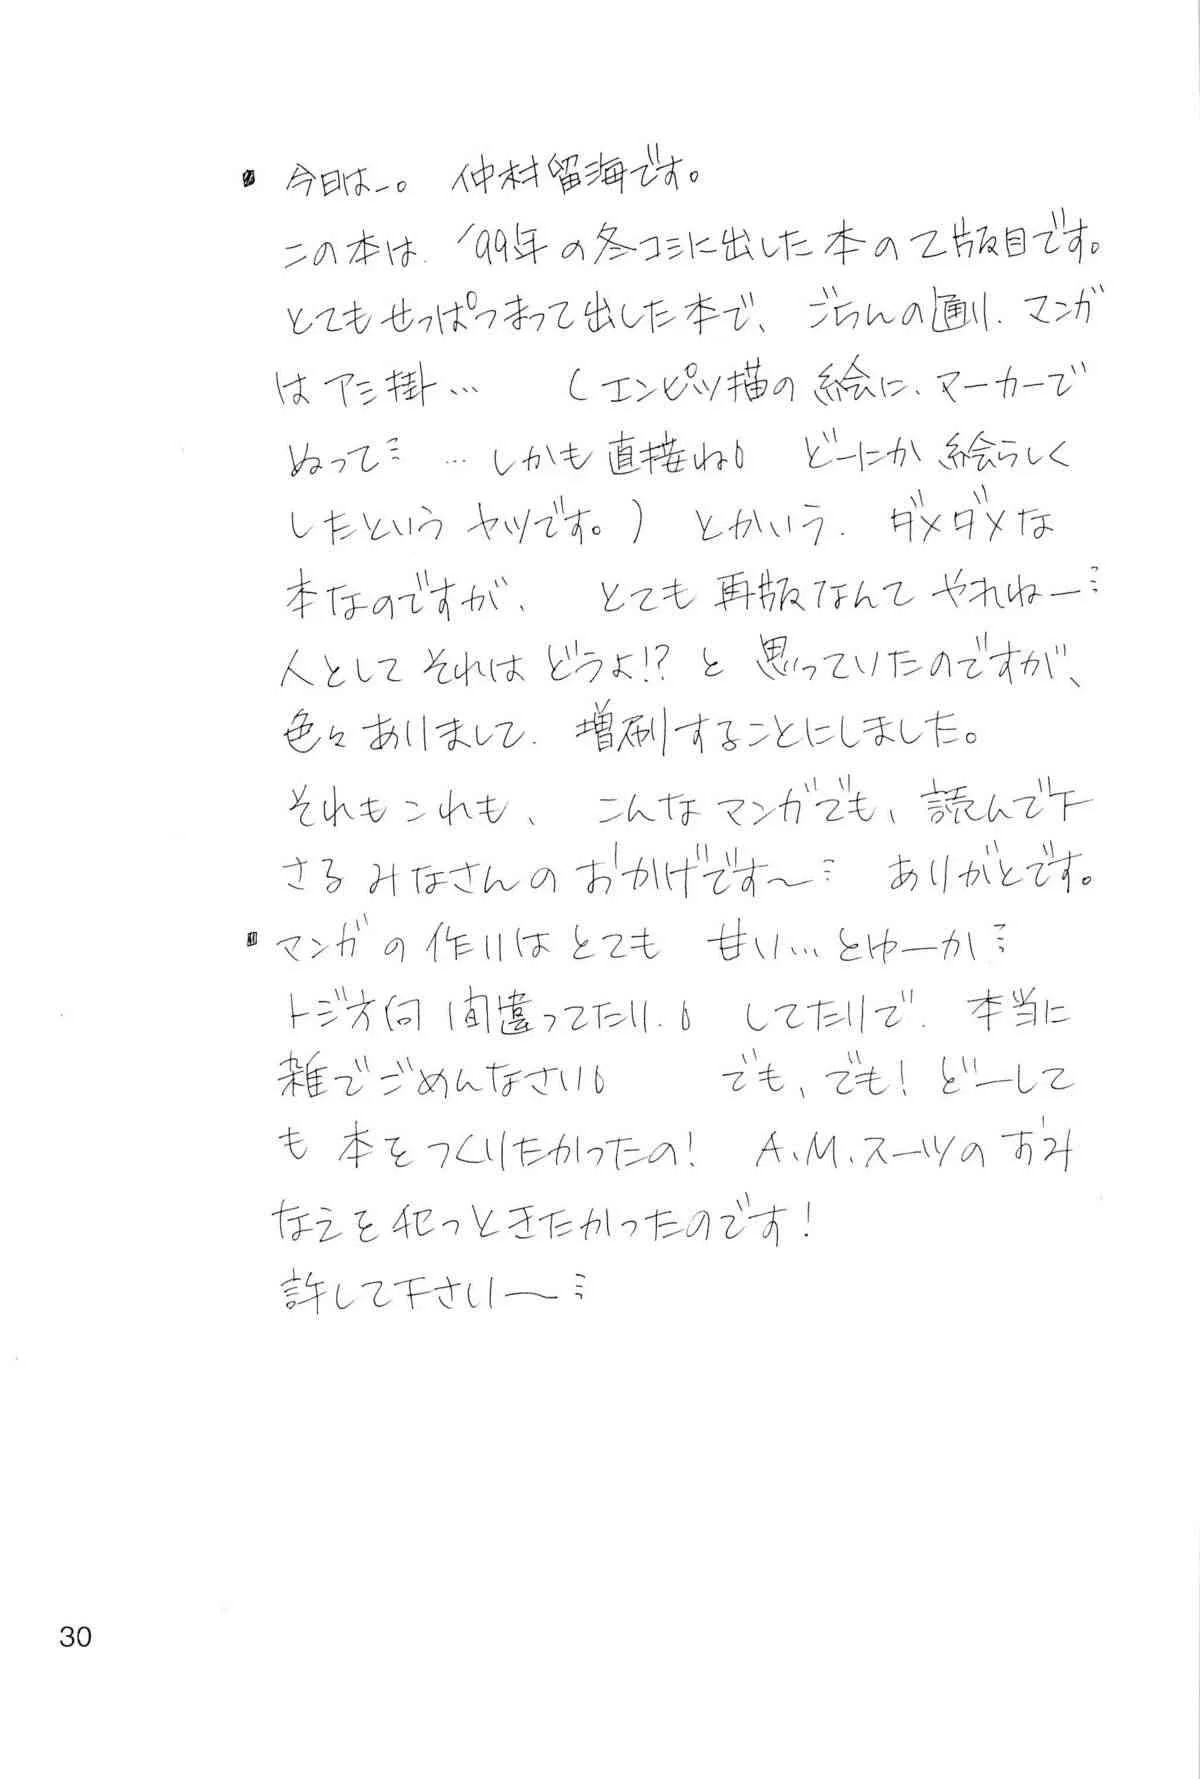 ・今日は－。 仲村留海です。
この本は、'99年の冬コミに出した本の2版目です。
とてもせっぱつまって出した本で、ごらんの通り、マンガ
はアミ掛… （エンピツ描の絵に、マーカーで
ぬって… …しかも直接ね どーにか絵らしく
したというヤツです。） とかいう、ダメダメな
本なのですが、 とても再版なんてやれねー…
人としてそれはどうよ!? と思っていたのですが、
色々ありまして、増刷することにしました。
それもこれも、 こんなマンガでも、読んで下
さるみなさんのおかげです～… ありがとです。
・マンガの作りはとても 甘い…とゆーか…
トジ方向間違ってたり、 してたりで、本当に
雑でごめんなさい でも、でも! どーして
も本をつくりたかったの! A.M.スーツのおみ
なえを犯っときたかったのです!
許して下さい～…
30